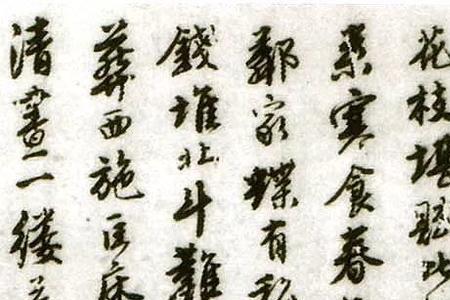 花枝堪
寒食春
鄰家蝶有
錢堆北斗難
葬西施匡床
清晝一縷